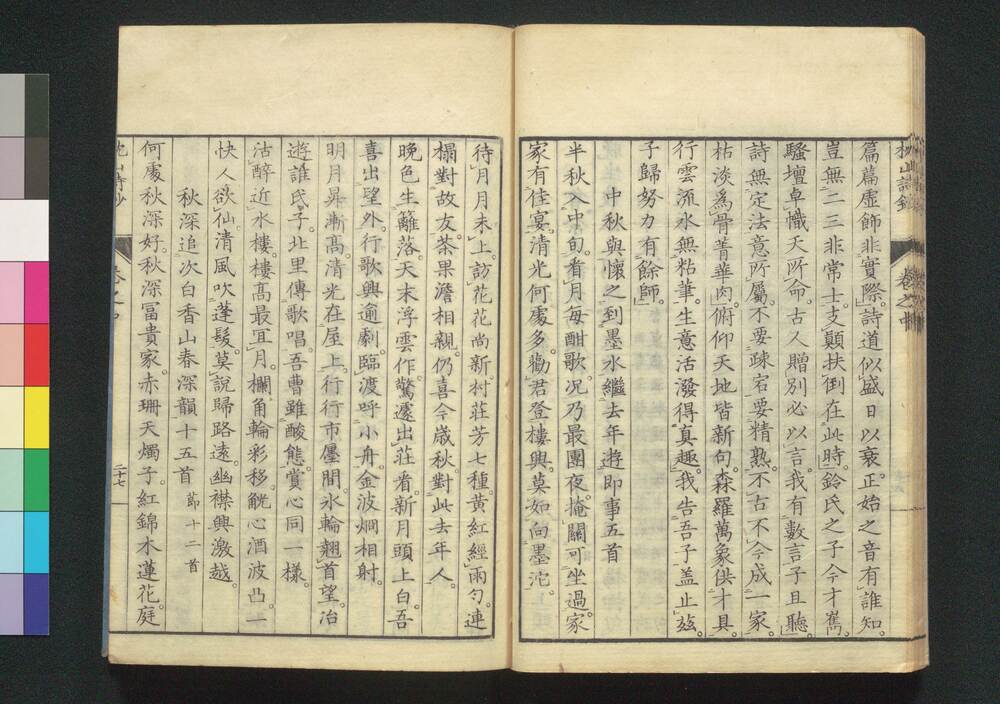 篇篇虛師非實際。詩道似盛日以衰。正始之音有誰知。
豈無二三非常士。支顚扶倒在此時。鈴氏之子今才雋。
騷壇卓幟天所命。古人贈別必以言。我有數言子且聽。
詩無定法意所屬。不要疎宕要精熟。不古不今成一家。
枯淡為骨菁華肉。俯仰天地皆新句。森羅萬象供才具。
行雲流水無粘筆。生意活潑得真趣。我告吾子盖止玆。
子歸努力有餘師。
中秋與懷之到墨水繼去年遊即事五首
半秋入中旬。看月每酣歌。况乃最團夜。掩關可坐過。家
家有佳宴。清光何處多。勸君登樓興。莫如向墨沱。
待月月未上。訪花花尚新。村莊芳七種。黃紅經雨勻。連
榻對故友。茶果澹相親。仍喜今歲秋。對此去年人。
晚色生籬落。天末浮雲作。驚還出莊看。新月頭上白。吾
喜出望外。行歌興逾劇。臨渡呼小舟。金波烱相射。
明月昇漸高。清光在屋上。行行市廛間。氷輪翹首望。冶
遊誰氏子。北里傳歌唱。吾曹雖酸態。賞心同一樣。
沽醉近水樓。樓高最宜月。欄角輪彩移。觥心酒波凸。一
快人欲仙。清風吹蓬髮。莫說歸路遠。幽襟興激越。
秋深追次白香山春深韻十五首 節十二首
何處秋深好。秋深冨貴家。赤珊天燭子。紅錦木蓮花。庭
卷之中
二十七